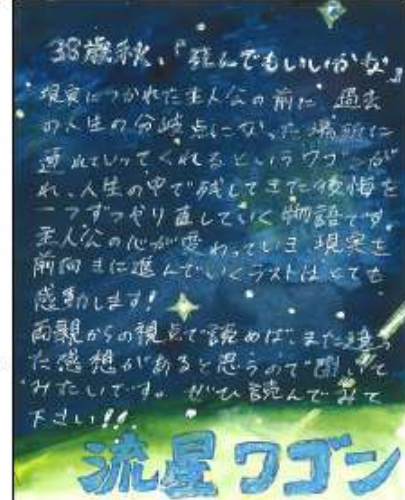 38歳秋、『死んでもいいかな』
現実につかれた主人公の前に 過去
の人生の分岐点になった場所に
連れていってくれるというワゴンが
れ、人生の中で残してきた後悔を
一つずつやり直していく物語です。
主人公の心が変わっていき 現実を
前向きに進んでいくラストはとても
感動します!
両親からの視点で読めば、また違っ
た感想があると思うので聞いて
みたいです。ぜひ読んでみて
下さい!!
流星ワゴン